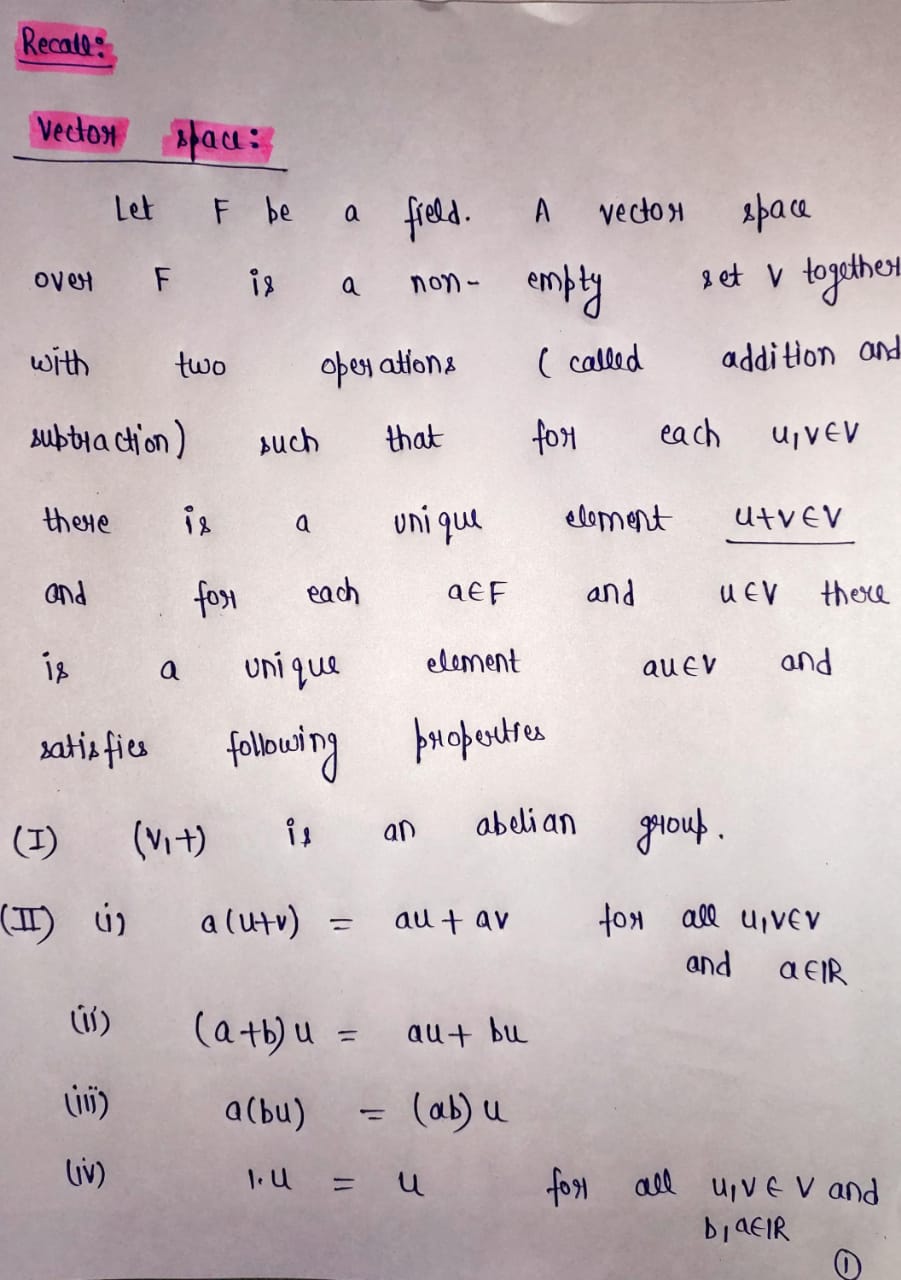 Recall:
Vector space:
Let F be a field. A vector space
over F is a non- empty set V together
with two operations ( called addition and
subtraction) such that for each u,v∈V
there is a unique element u+v∈V
and for each a∈F and u∈V there
is a unique element au∈V and
satisfies following properties
(I) (V,+) is an abelian group.
(II) (i) a(u+v) = au + av for all u,v∈V
and a∈IR
(ii) (a+b)u = au+ bu
(iii) a(bu) = (ab)u
(iv) 1.u = u for all u,v∈V and
b,a∈IR
1